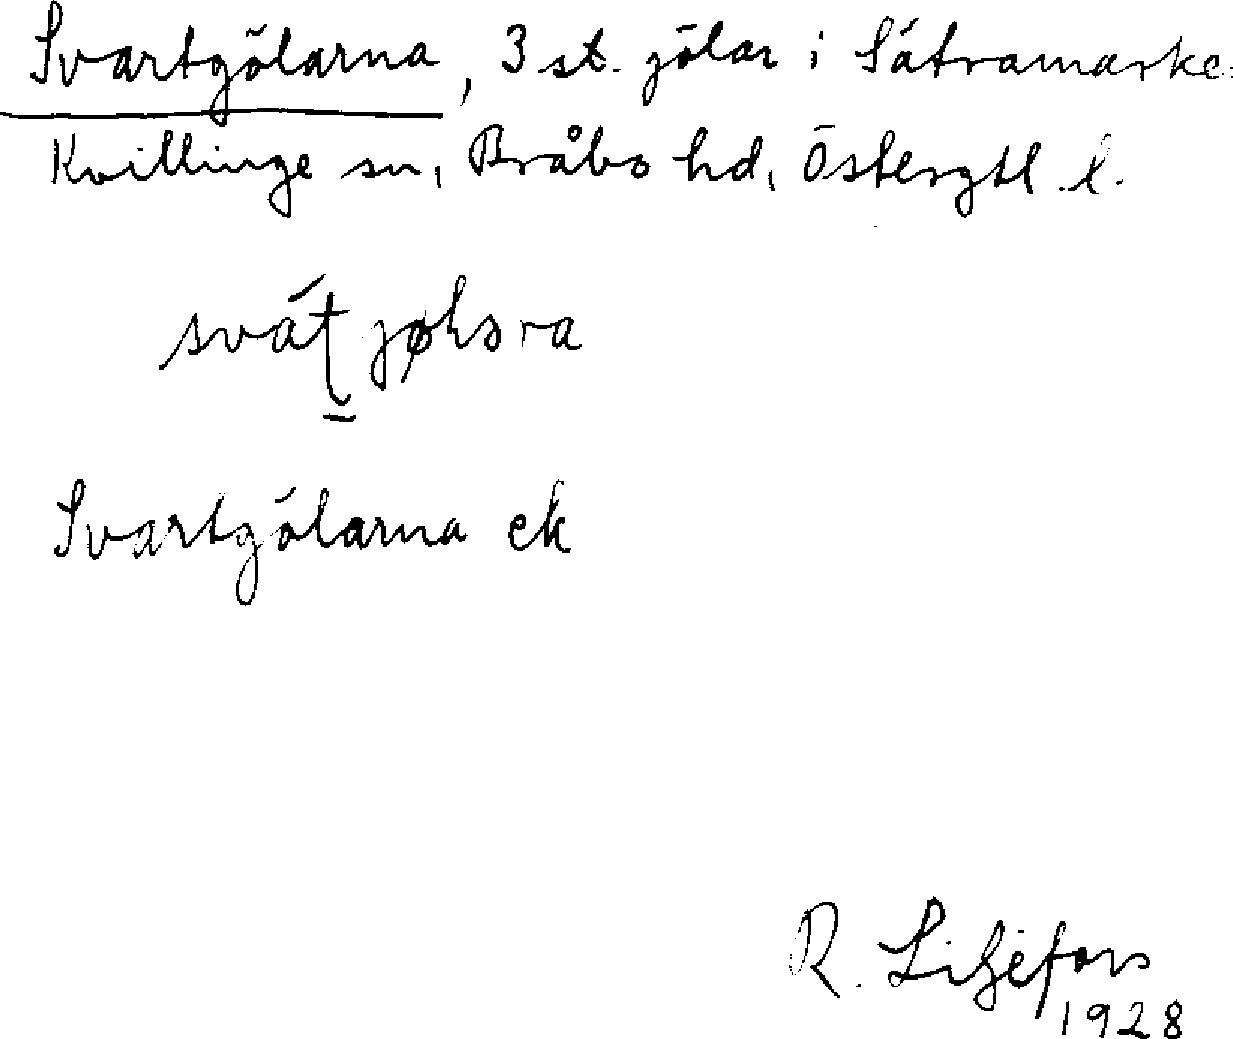 Svartgölarna, 3 st. jölar i Sätramarke
Kvillinge sn, Bråbo hd, Östergtl. l.
Svartgölarna ek
R. Liljefors
1928